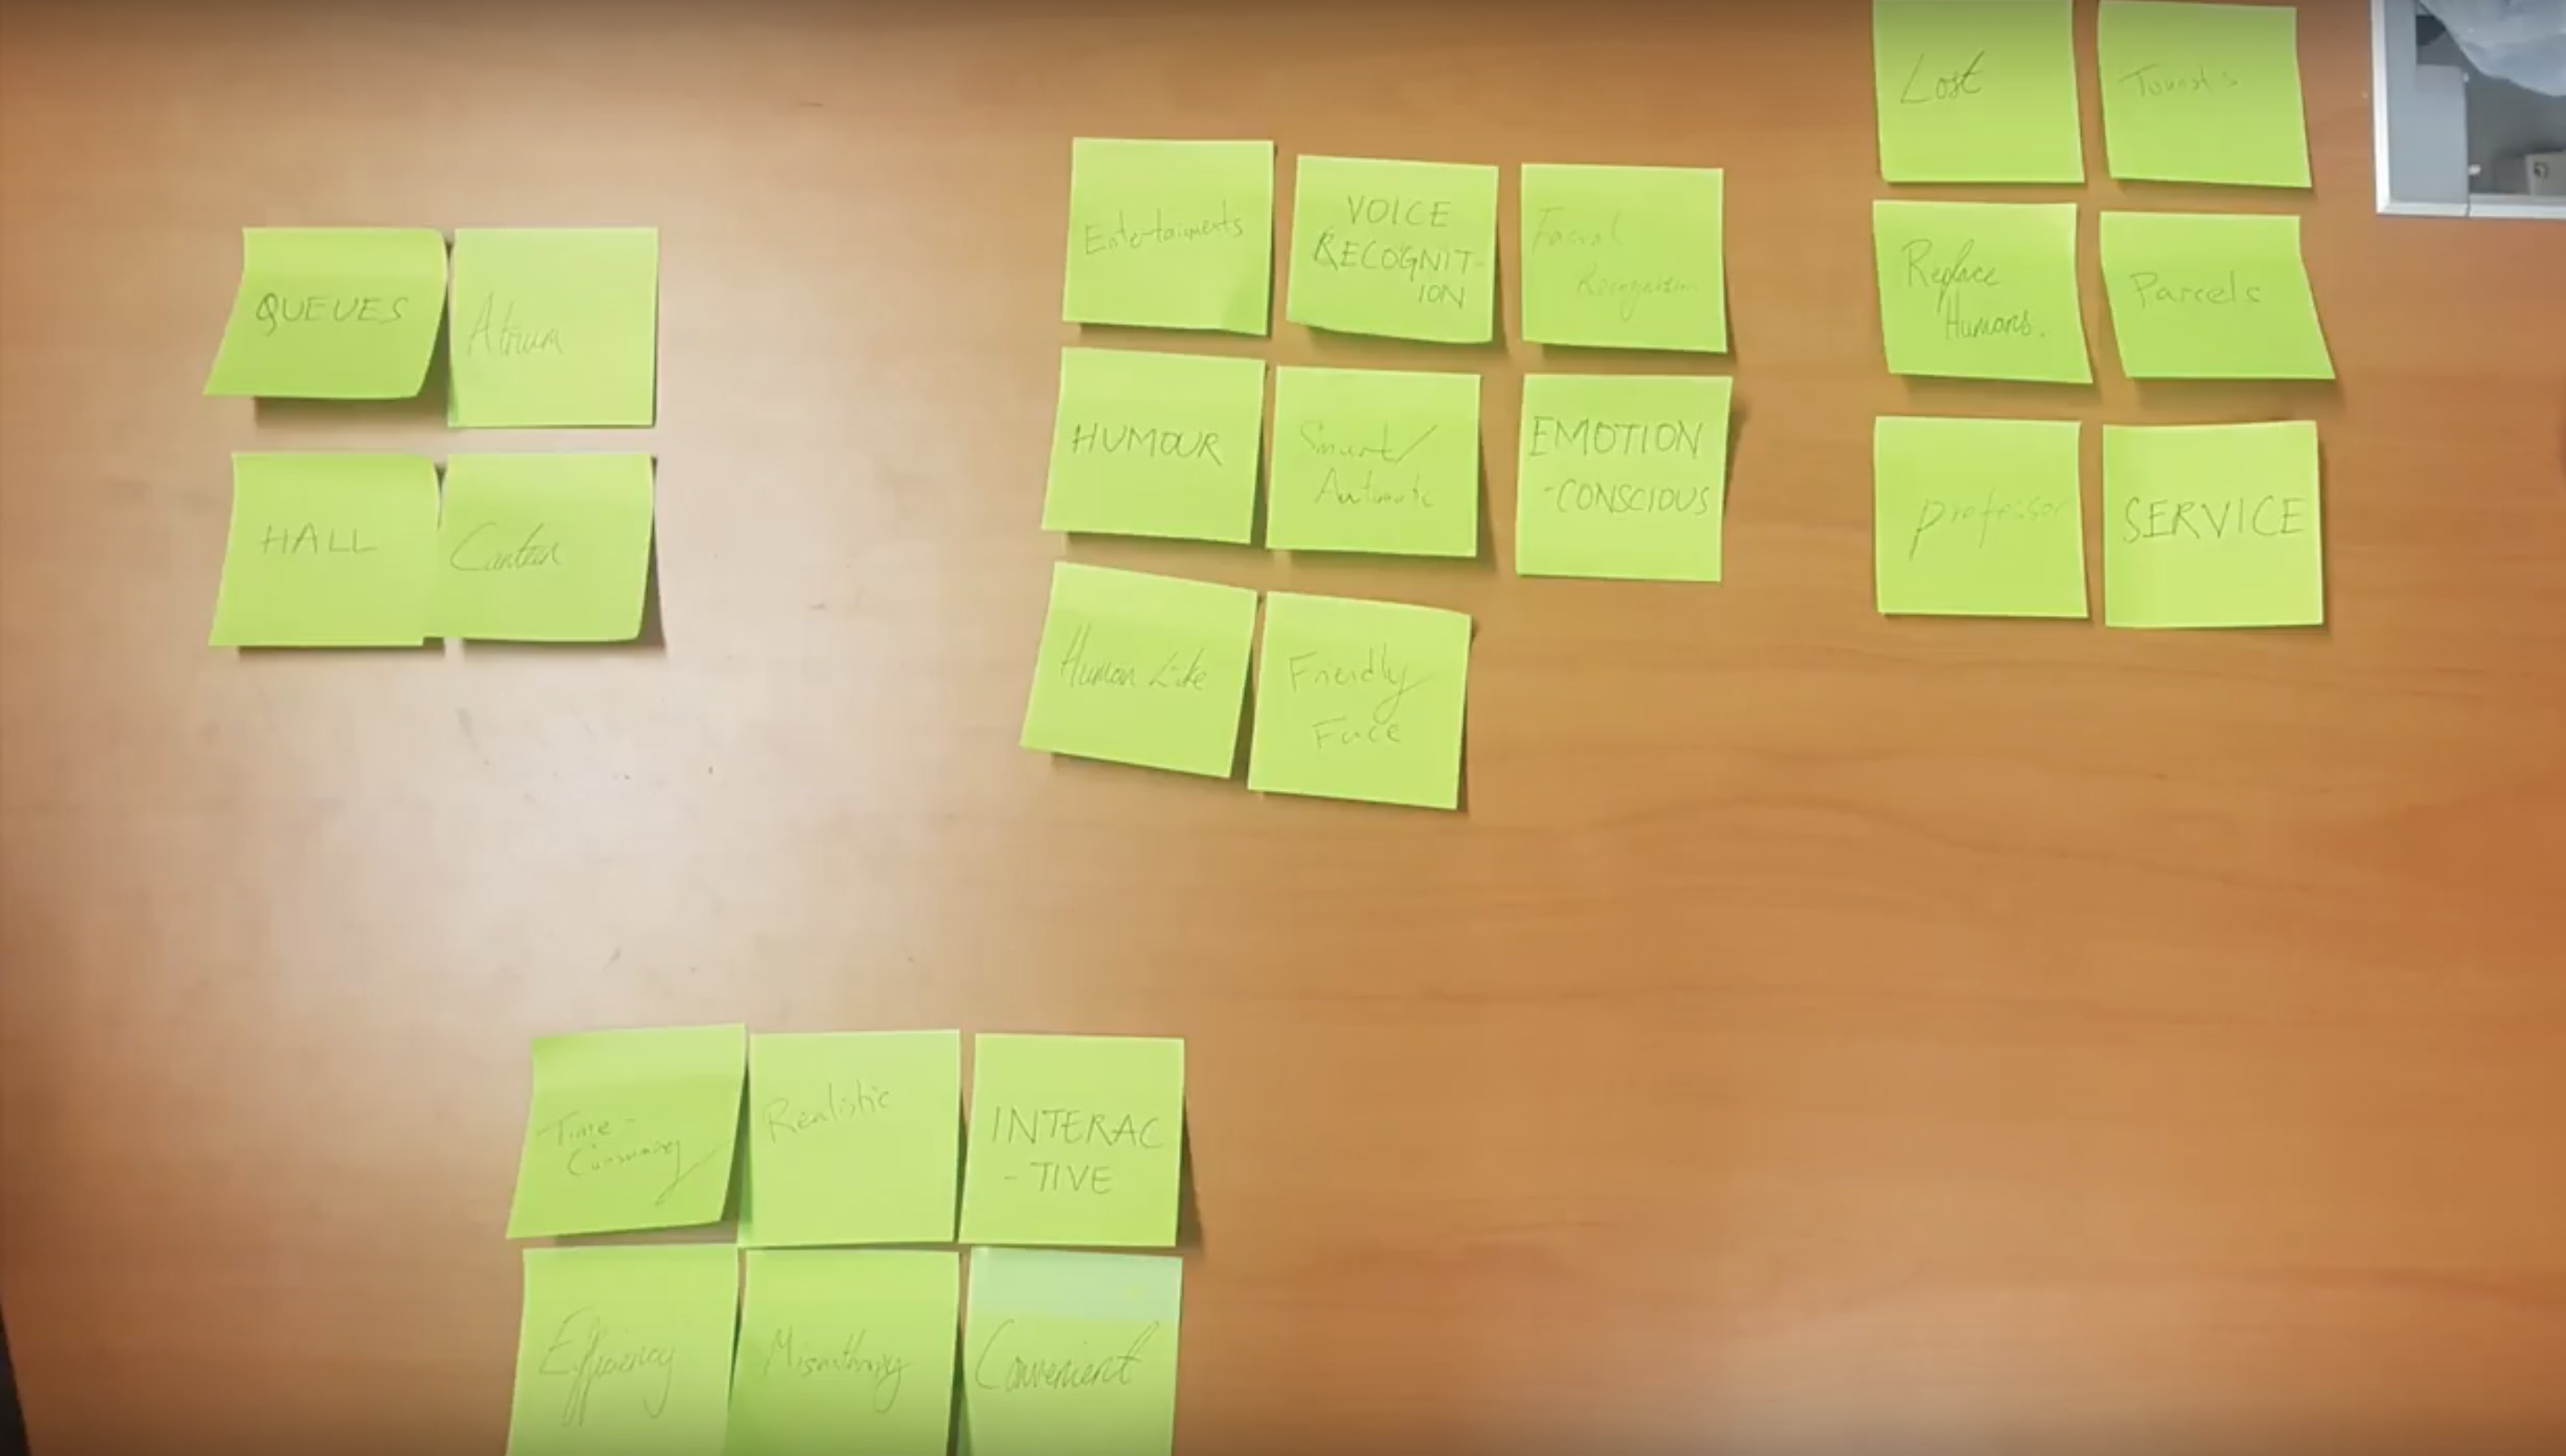 QUEUES
Atrium
HALL
Canteen
Entertainments
VOICE
RECOGNIT-
ION
Facial
Recognition
HUMOUR
Smart/
Automatic
EMOTION
-CONSCIOUS
Human Like
Friendly
Face
Lost
Tourists
Replace
Humans.
Parcels
professor
SERVICE
Time-
Consuming
Realistic
INTERAC
-TIVE
Efficiency
Misanthropy
Convenient